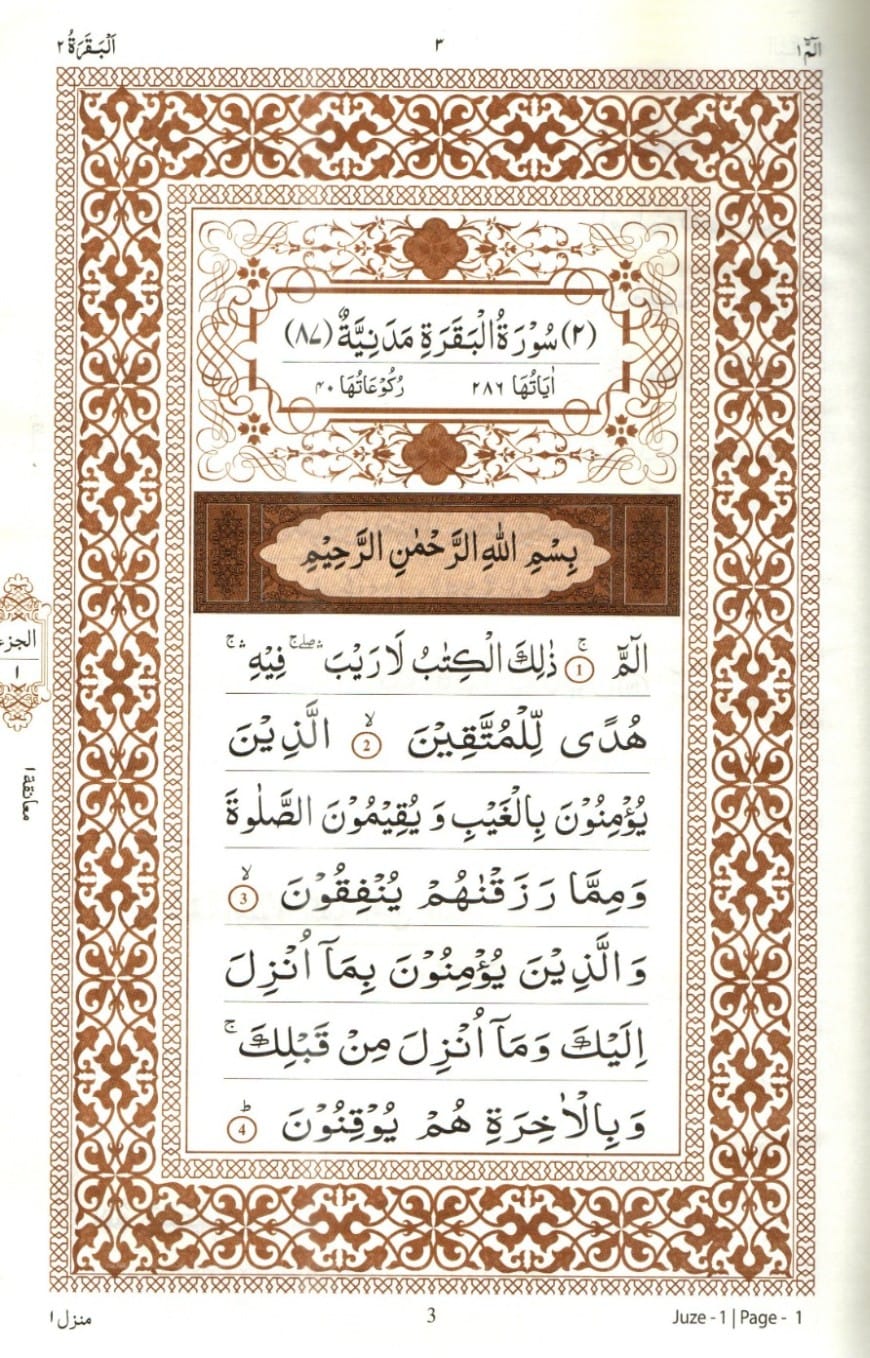 الٓمّٓ ١
٣
اَلْبَقَرَةُ ٢
(٢) سُوْرَةُ الْبَقَرَةِ مَدَنِيَّةٌ (٨٧)
اٰيَاتُهَا ٢٨٦ رُكُوْعَاتُهَا ٤٠
بِسْمِ اللّٰهِ الرَّحْمٰنِ الرَّحِيْمِ
الٓمّٓ ۚ ﴿1﴾ ذٰلِكَ الْكِتٰبُ لَا رَيْبَ ۛۖۚ فِيْهِ ۛۚ
هُدًى لِّلْمُتَّقِيْنَ ۙ ﴿2﴾ الَّذِيْنَ
يُؤْمِنُوْنَ بِالْغَيْبِ وَ يُقِيْمُوْنَ الصَّلٰوةَ
وَمِمَّا رَزَقْنٰهُمْ يُنْفِقُوْنَ ۙ ﴿3﴾
وَالَّذِيْنَ يُؤْمِنُوْنَ بِمَآ اُنْزِلَ
اِلَيْكَ وَمَآ اُنْزِلَ مِنْ قَبْلِكَ ۚ
وَبِالْاٰخِرَةِ هُمْ يُوْقِنُوْنَ ؕ ﴿4﴾
الجزء
١
معانقة ١
منزل ١
3
Juze - 1 | Page - 1